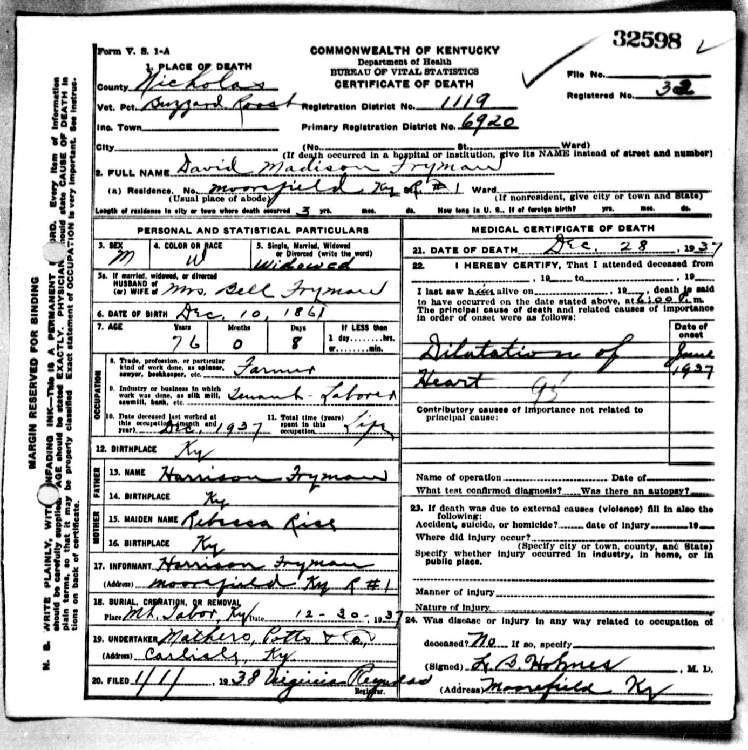 32598
Form V. S. 1-A
COMMONWEALTH OF KENTUCKY
Department of Health
BUREAU OF VITAL STATISTICS
CERTIFICATE OF DEATH
File No.
Registered No. 32
1. PLACE OF DEATH
County Nicholas
Vot. Pct. Buzzard Roost Registration District No. 1119
Inc. Town Primary Registration District No. 6920
City (No. St. Ward)
(If death occurred in a hospital or institution, give its NAME instead of street and number)
2. FULL NAME David Madison Fryman
(a) Residence. No. Moorefield Ky R #1 Ward
(Usual place of abode) (If nonresident, give city or town and State)
Length of residence in city or town where death occurred 3 yrs. mos. ds. How long in U. S., if of foreign birth? yrs. mos. ds.
PERSONAL AND STATISTICAL PARTICULARS
3. SEX 4. COLOR OR RACE 5. Single, Married, Widowed
or Divorced (write the word)
M W Widowed
5a. If married, widowed, or divorced
HUSBAND of
(or) WIFE of Mrs. Bell Fryman
6. DATE OF BIRTH Dec, 10, 1861
7. AGE Years Months Days If LESS than
76 0 8 1 day, hrs.
or min.
OCCUPATION
8. Trade, profession, or particular
kind of work done, as spinner,
sawyer, bookkeeper, etc. Farmer
9. Industry or business in which
work was done, as silk mill,
sawmill, bank, etc. Tenant-Laborer
10. Date deceased last worked at
this occupation (month and
year) Dec, 1937
11. Total time (years)
spent in this
occupation Life
12. BIRTHPLACE Ky
FATHER
13. NAME Harrison Fryman
14. BIRTHPLACE Ky
MOTHER
15. MAIDEN NAME Rebecca Rice
16. BIRTHPLACE Ky
17. INFORMANT Harrison Fryman
(Address) Moorefield Ky R #1
18. BURIAL, CREMATION, OR REMOVAL
Place Mt. Tabor, Ky Date 12-30-1937
19. UNDERTAKER Mathers, Potts & Co,
(Address) Carlisle, Ky
20. FILED 1/1/, 1938 Virginia Reynolds
Registrar.
MEDICAL CERTIFICATE OF DEATH
21. DATE OF DEATH Dec. 28, 1937
22. I HEREBY CERTIFY, That I attended deceased from
, 19 to , 19
I last saw him alive on , 19 , death is said
to have occurred on the date stated above, at 6:00 P. m.
The principal cause of death and related causes of importance
in order of onset were as follows:
Date of
onset
Dilatation of June
Heart 1937
Contributory causes of importance not related to
principal cause:
Name of operation Date of
What test confirmed diagnosis? Was there an autopsy?
23. If death was due to external causes (violence) fill in also the
following:
Accident, suicide, or homicide? date of injury 19
Where did injury occur?
(Specify city or town, county, and State)
Specify whether injury occurred in industry, in home, or in
public place.
Manner of injury
Nature of Injury
24. Was disease or injury in any way related to occupation of
deceased? No If so, specify
(Signed) L. B. Holmes, M. D.
(Address) Moorefield Ky
MARGIN RESERVED FOR BINDING